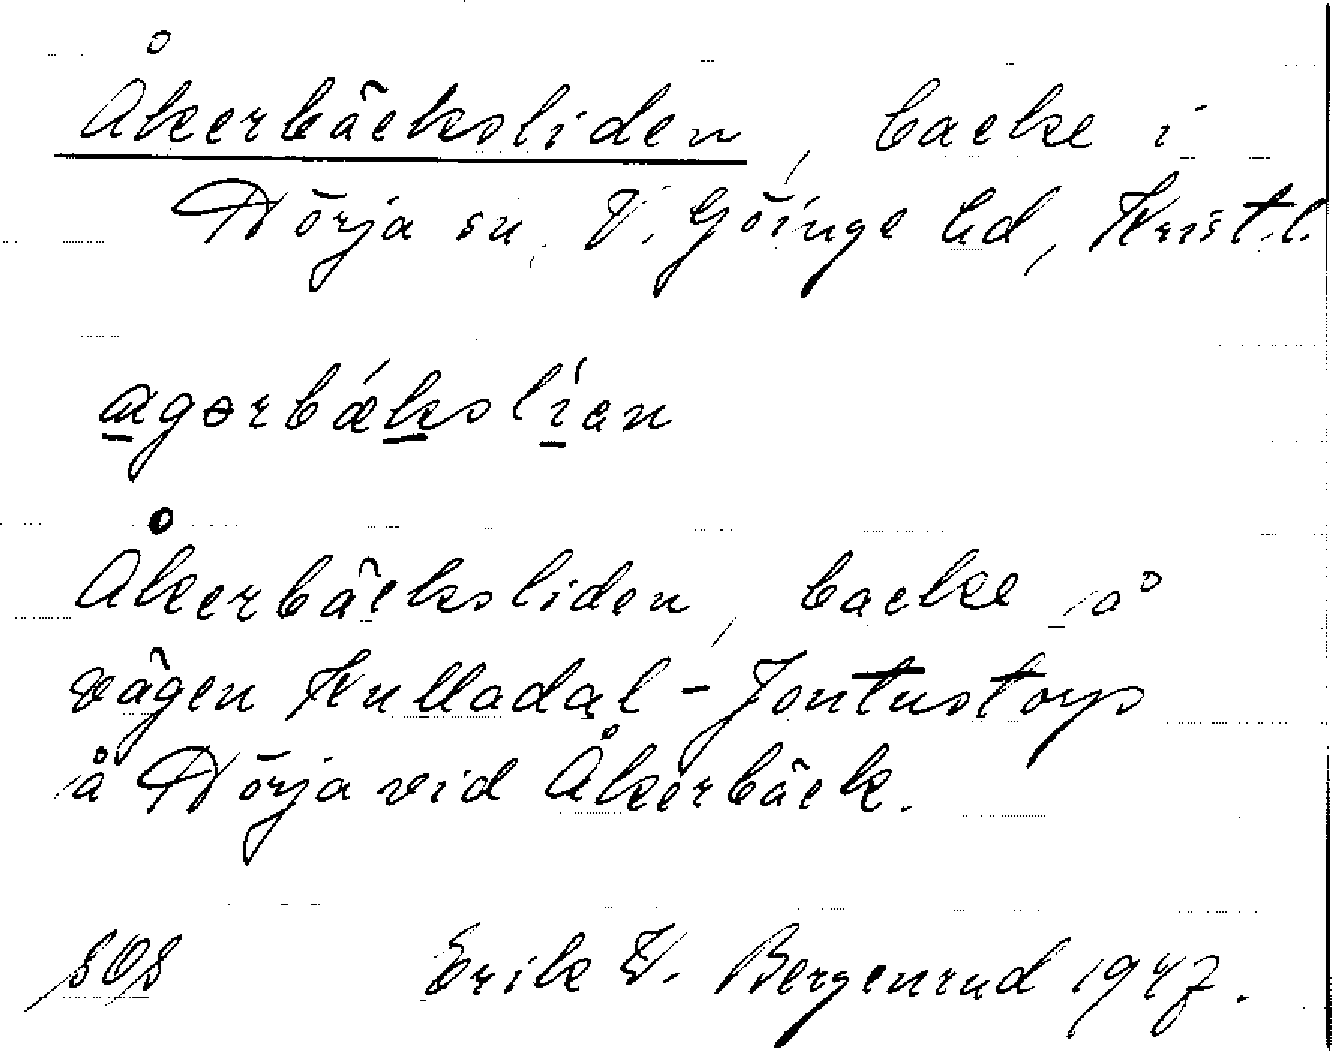 Åkerbäcksliden, backe i
Nörja sn, V. Göinge hd, Krist.l.
agərbǽkslían
Åkerbäcksliden, backe på
vägen Kulladal - Jontustorp
på Nörja vid Åkerbäck.
sOs Erik W. Bergenrud 1947.